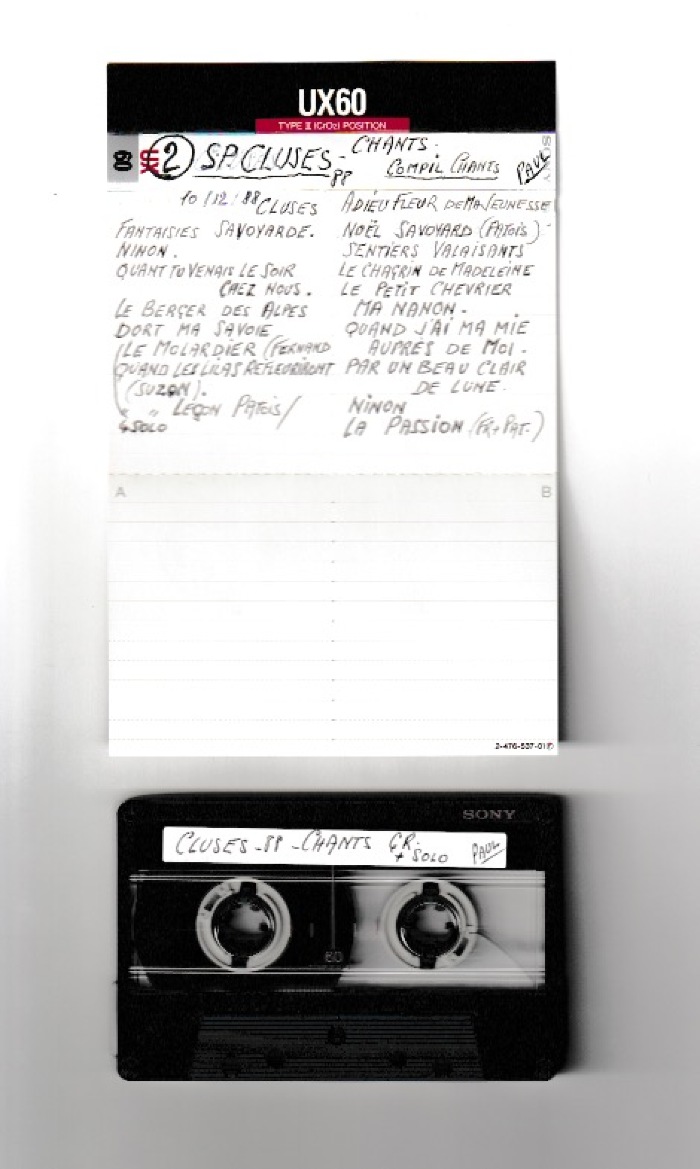 UX60
TYPE II (CrO2) POSITION
8
2 S.P. CLUSES - 88
CHANTS.
COMPIL CHANTS
PAUL
SONY
10/12/88 CLUSES
FANTAISIES SAVOYARDE.
NINON.
QUANT TU VENAIS LE SOIR
CHEZ NOUS.
LE BERGER DES ALPES
DORT MA SAVOIE
(LE MOLARDIER (FERNAND
QUAND LES LILAS REFLEURIRONT
(SUZON).
" " LEÇON PATOIS/
4 SOLO
ADIEU FLEUR DE MA JEUNESSE
NOËL SAVOYARD (PATOIS)
SENTIERS VALAISANTS
LE CHAGRIN DE MADELEINE
LE PETIT CHEVRIER
MA NANON.
QUAND J'AI MA MIE
AUPRÈS DE MOI.
PAR UN BEAU CLAIR
DE LUNE.
NINON
LA PASSION (FR+PAT.)
A
B
SONY
CLUSES - 88 - CHANTS GR.
+ SOLO
PAUL
60